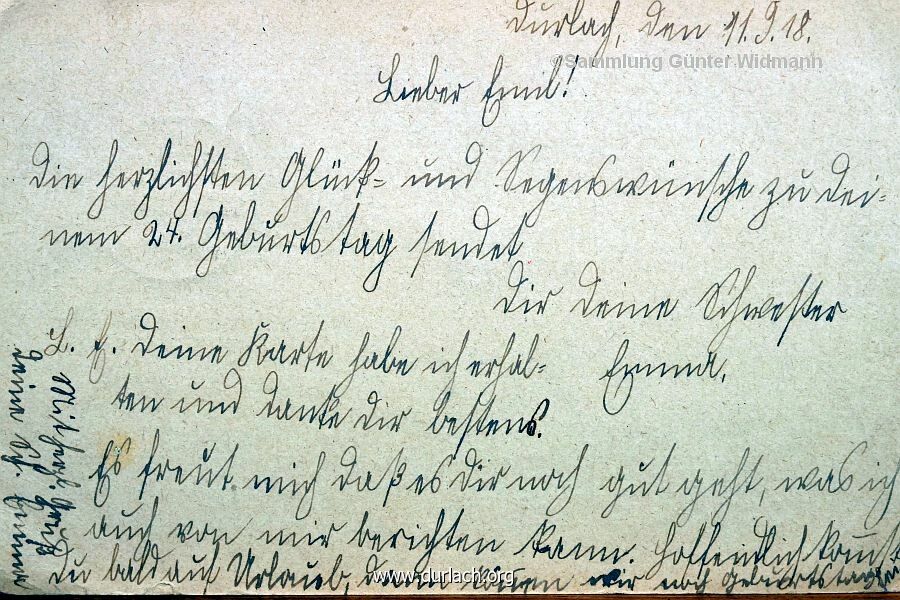 Durlach, den 11.9.18.
©Sammlung Günter Widmann
Lieber Emil!
Die herzlichsten Glück= und Segenswünsche zu Dei=
nem 24. Geburtstag sendet
Dir Deine Schwester
Emma.
L. E. Deine Karte habe ich erhal=
ten und danke Dir bestens.
Es freut mich daß es Dir noch gut geht, was ich
auch von mir berichten kann. Hoffendlich komst
Du bald auf Urlaub, dann können wir noch Geburtstag
www.durlach.org
Mit herzl. Gruß
Deine Sch. Emma